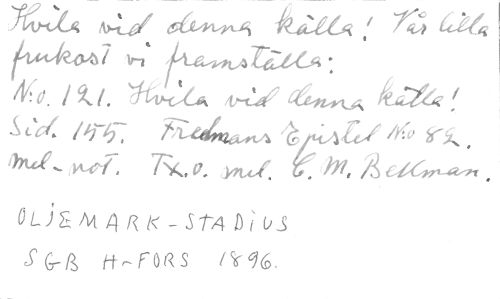 Hvila vid denna källa! Vår lilla
frukost vi framställa:
N:o. 121. Hvila vid denna källa!
Sid. 155. Fredmans Epistel N:o 82.
mel-not. Tx.o. mel. C. M. Bellman.
OLJEMARK-STADIUS
SGB H-FORS 1896.